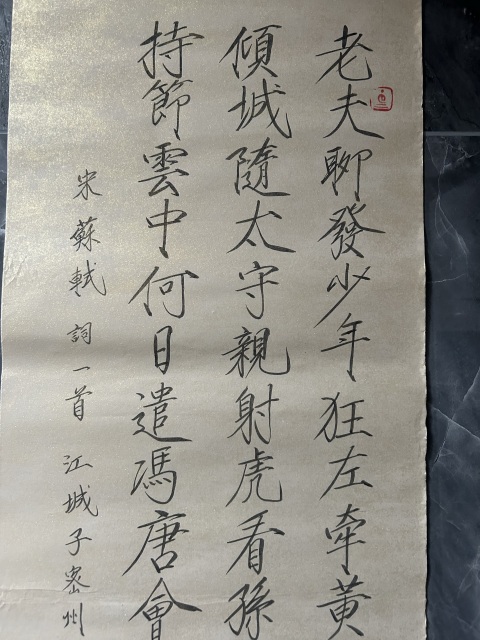 老夫聊發少年狂左牽黃
傾城隨太守親射虎看孫
持節雲中何日遣馮唐會
宋蘇軾詞一首江城子密州